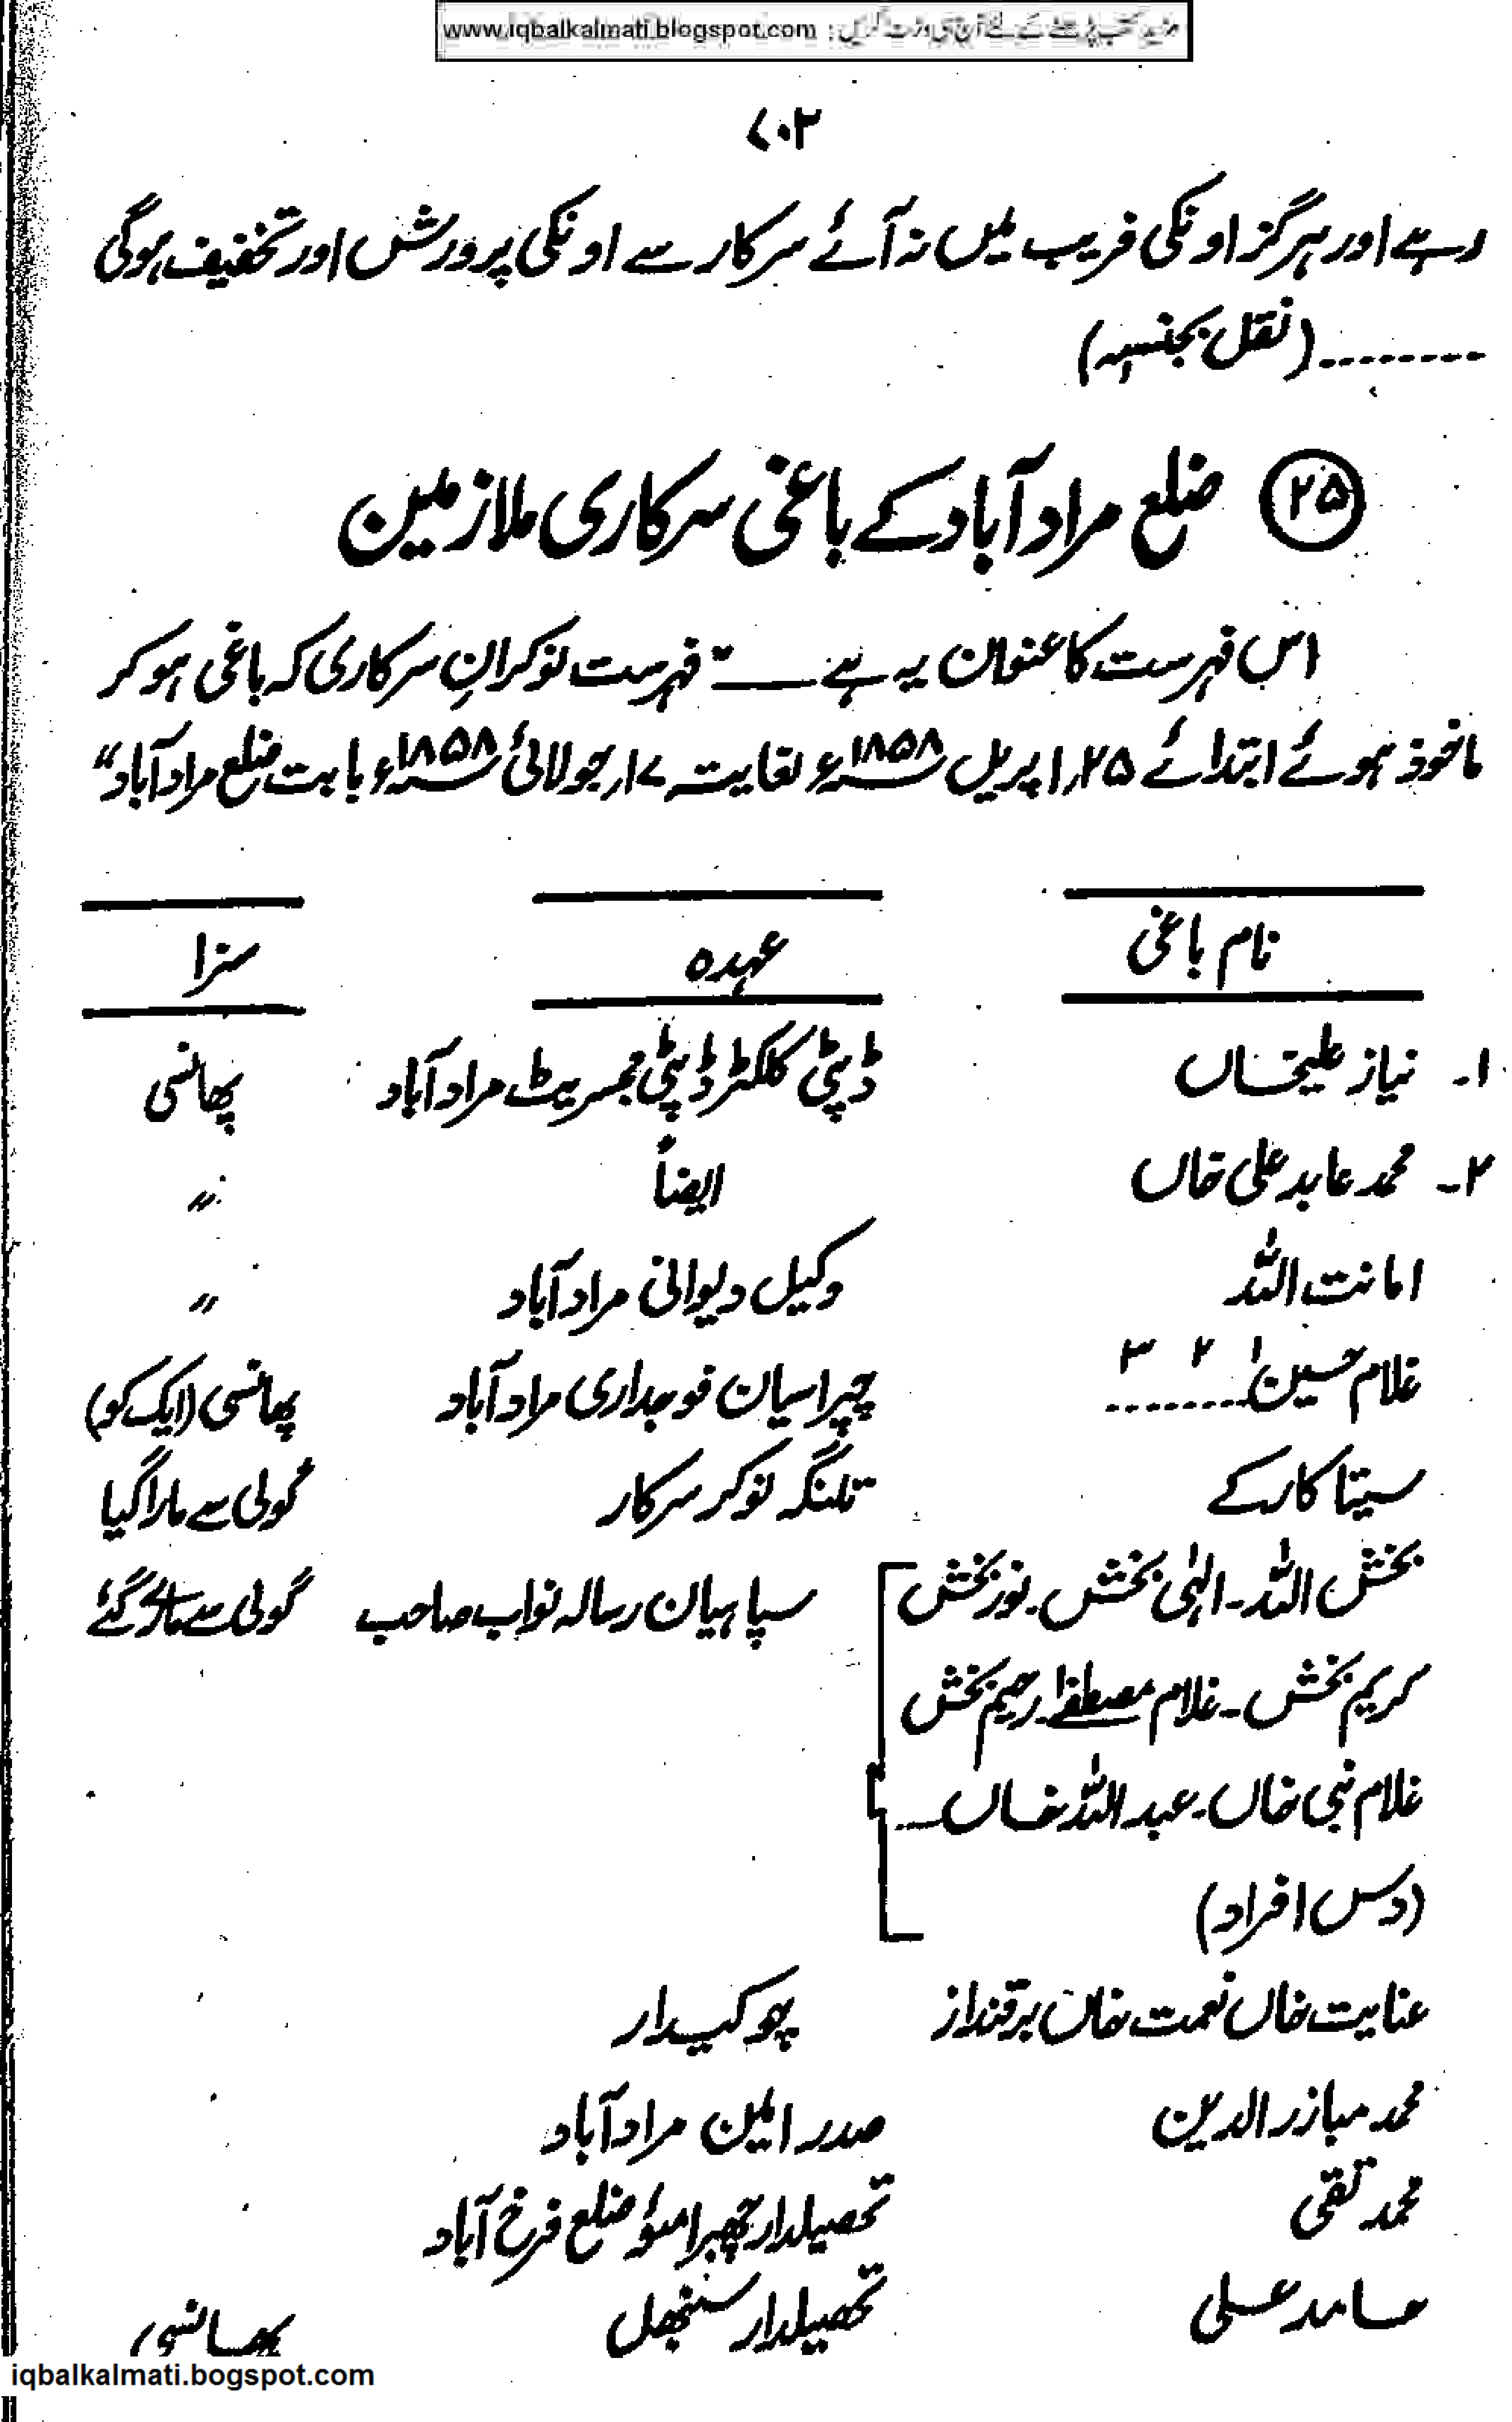 مزید کتب پڑھنے کے لئے آج ہی وزٹ کریں : www.iqbalkalmati.blogspot.com
۷۰۲
رہے اور ہرگز اونکی فریب میں نہ آئے سرکار سے اونکی پرورش اور تخفیف ہوگی
........(نقل بجنسہٖ)
۲۵ ضلع مراد آباد کے باغی سرکاری ملازمین
اس فہرست کا عنوان یہ ہے ــــ "فہرست نوکرانِ سرکاری کہ باغی ہو کر
ماخوذ ہوئے ابتدائے ۲۵؍اپریل ۱۸۵۸ء لغایت ۱۷؍جولائی ۱۸۵۸ء بابت ضلع مراد آباد"
نام باغی عہدہ سزا
۱۔ نیاز علیخاں ڈپٹی کلکٹر ڈپٹی مجسٹریٹ مراد آباد پھانسی
۲۔ محمد عابد علی خاں ایضاً 〃
امانت اللہ وکیل دیوانی مراد آباد 〃
غلام حسین ۱ ۲ ۳ ........ چپراسیان فوجداری مراد آباد پھانسی (ایک کو)
سیتا کارکے تلنگہ نوکر سرکار گولی سے مارا گیا
بخش اللہ۔ الٰہی بخش۔ نور بخش سپاہیان رسالہ نواب صاحب گولی سے مارے گئے
کریم بخش۔ غلام مصطفےٰ۔ رحیم بخش
غلام نبی خاں۔ عبد اللہ خاں....
(دس افراد)
عنایت خاں نعمت خاں برقنداز چوکیدار
محمد مبازر الدین صدر امین مراد آباد
محمد تقی تحصیلدار چھبرامئو ضلع فرخ آباد
حامد علی تحصیلدار سنبھل پھانسی
iqbalkalmati.bogspot.com